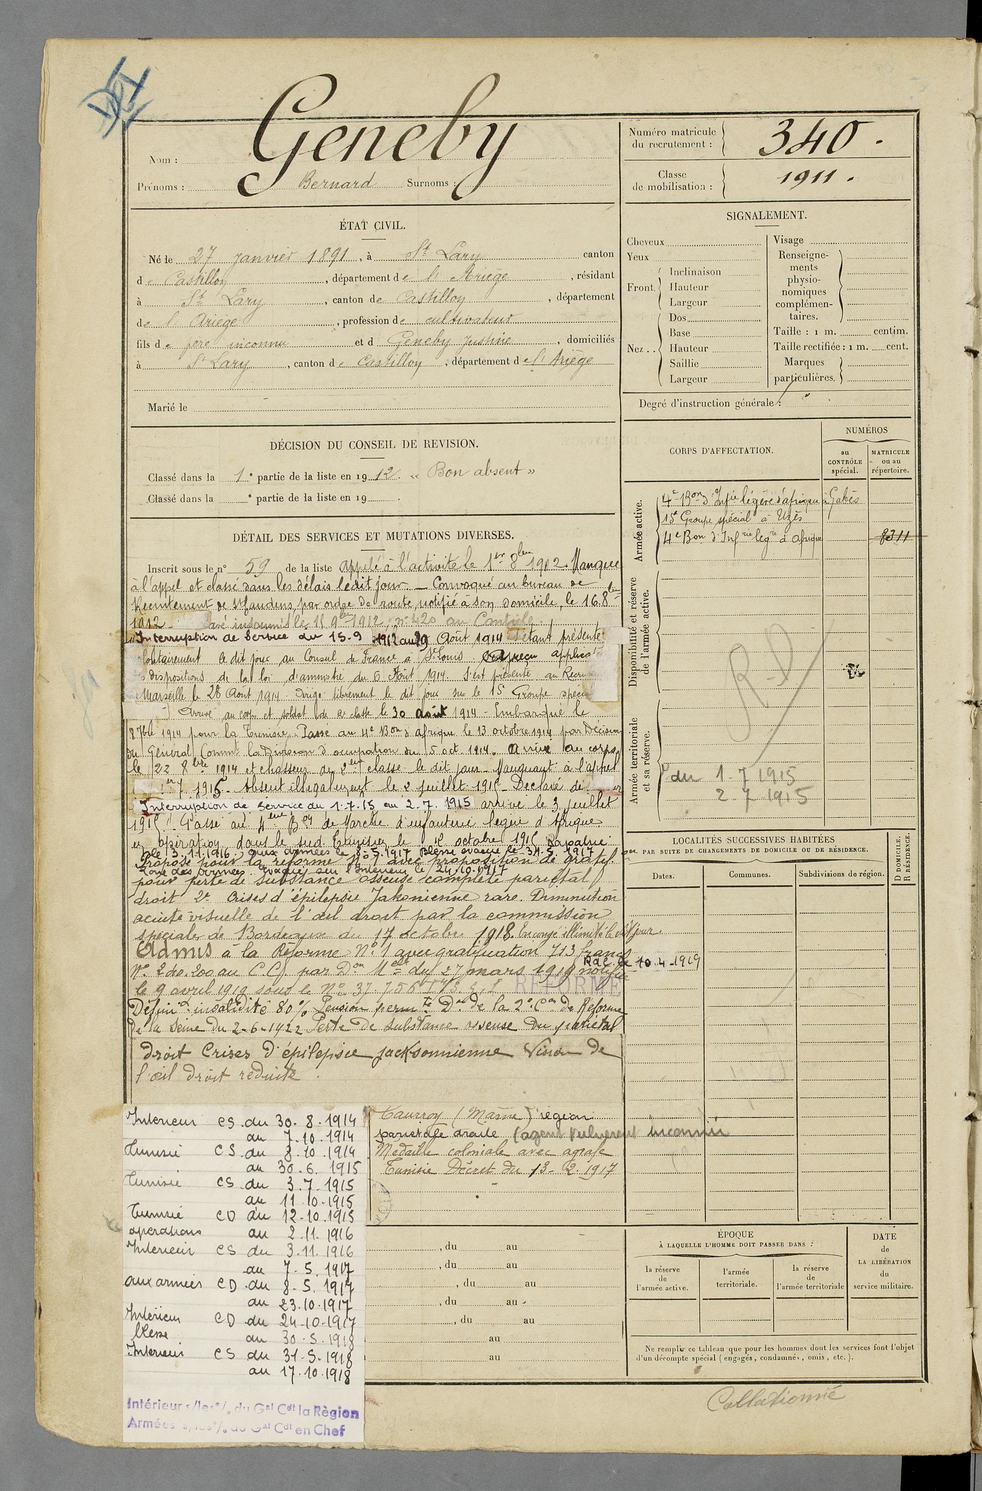 Geneby
Nom :
Prénoms : Bernard Surnoms :
Numéro matricule
du recrutement :
340.
Classe
de mobilisation :
1911.
ÉTAT CIVIL.
Né le 27 janvier 1891, à St Lary canton
de Castillon, département de l'Ariège, résidant
à St Lary, canton de Castillon, département
de l'Ariège, profession de cultivateur
fils de père inconnu et d Geneby Justine, domiciliés
à St Lary, canton de Castillon, département de l'Ariège
Marié le
DÉCISION DU CONSEIL DE REVISION.
Classé dans la 1e partie de la liste en 1912. « Bon absent »
Classé dans la e partie de la liste en 19 .
DÉTAIL DES SERVICES ET MUTATIONS DIVERSES.
Inscrit sous le n° 59 de la liste appelé à l'activité le 1er 8bre 1912. Manque
à l'appel et classé dans les délais le dit jour _ Convoqué au bureau de
Recrutement de St Gaudens par ordre de route notifié à son domicile le 16.8bre
1912 aré insoumis le 15 9bre 1912, n° 420 au Contrôle.
Interruption de service du 15-9 1912 au 29 Août 1914 S'étant présenté
volontairement le dit jour au Consul de France à St Louis
dispositions de la loi d'amnistie du 6 Août 1914. S'est présenté au
Marseille le 28 Août 1914 Dirigé librement le dit jour sur le 15e Groupe spécial
Arrivé au corps et soldat de 2e classe le 30 août 1914 - Embarqué le
1914 pour la Tunisie. Passé au 4e Bon d'Afrique le 13 octobre 1914 par Décision
du Général Comm la Division d'occupation du 5 oct. 1914. Arrivé au corps
le 22 8bre 1914 et chasseur de 2e classe le dit jour. Manquant à l'appel
1er 7 1915 - Absent illégalement le 2 juillet 1915. Déclaré
Interruption de service du 1.7.15 au 2.7.1915 arrivé le 3 juillet
1915. Passé au 4eme Bon de Marche d'infanterie légère d'Afrique
en opération dans le sud Tunisien le 12 octobre 1915 Rapatrié
le 3.11.1916. Aux armées le 8.5.1917 Blessé évacué le 31.5.1917
Proposé pour la réforme n° 1 avec proposition de gratif.
Zone des Armées. Evacué sur l'Intérieur le 24.10.1917
pour perte de substance osseuse complète pariétal
droit 2° Crises d'épilepsie Jaksonienne rare. Diminution
acuité visuelle de l'œil droit par la commission
spéciale de Bordeaux du 17 octobre 1918. En congé illimité le dit jour
Admis à la Réforme N° 1 avec gratification 713 francs
N° 240.200 au C.C. par Don Melle du 27 mars 1919 notifié
Rac. le 10.4-1919
le 9 avril 1919 sous le N° 37.756
RÉFORME
Définive invalidité 80% Pension permte Don de la 2e Con de Réforme
de la Seine du 2-6-1922 Perte de substance osseuse du pariétal
droit Crises d'épilepsie jacksonnienne Vision de
l'œil droit réduite.
Intérieur CS du 30.8.1914
au 7.10.1914
Tunisie CS du 8.10.1914
au 30.6.1915
Tunisie CS du 3.7.1915
au 11.10.1915
Tunisie CD du 12.10.1915
opérations au 2.11.1916
Intérieur CS du 3.11.1916
au 7.5.1917
aux armées CD du 8.5.1917
au 23.10.1917
Intérieur CD du 24.10.1917
blessé au 30.5.1918
Intérieur CS du 31.5.1918
au 17.10.1918
Intérieur du Gal Cdt la Région
Armées du Gal Cdt en Chef
Tauroy (Marne) région
pariétale droite (agent vulnérant inconnu
Médaille coloniale avec agrafe
Tunisie Décret du 13.2.1917
, du au
, du au
, du au
, du au
, du au
au
au
SIGNALEMENT.
Cheveux
Yeux
Front. Inclinaison
Hauteur
Largeur
Nez . . Dos
Base
Hauteur
Saillie
Largeur
Visage
Renseigne-
ments
physio-
nomiques
complémen-
taires.
Taille : 1 m. centim.
Taille rectifiée : 1 m. cent.
Marques
particulières.
Degré d'instruction générale :
CORPS D'AFFECTATION.
NUMÉROS
au
CONTRÔLE
spécial.
MATRICULE
ou au
répertoire.
Armée active.
4e Bon d'Infie légère d'Afrique à Gabès
15e Groupe spécial à Uzès
4e Bon d'Infrie legre d'Afrique 8311
Disponibilité et réserve
de l'armée active.
R-D
Armée territoriale
et sa réserve.
du 1.7.1915
2.7.1915
LOCALITÉS SUCCESSIVES HABITÉES
PAR SUITE DE CHANGEMENTS DE DOMICILE OU DE RÉSIDENCE.
Dates.
Communes.
Subdivisions de région.
D DOMICILE.
R RÉSIDENCE.
ÉPOQUE
À LAQUELLE L'HOMME DOIT PASSER DANS :
la réserve
de
l'armée active.
l'armée
territoriale.
la réserve
de
l'armée territoriale
DATE
de
LA LIBÉRATION
du
service militaire.
Ne remplir ce tableau que pour les hommes dont les services font l'objet
d'un décompte spécial (engagés, condamnés, omis, etc.).
Collationné